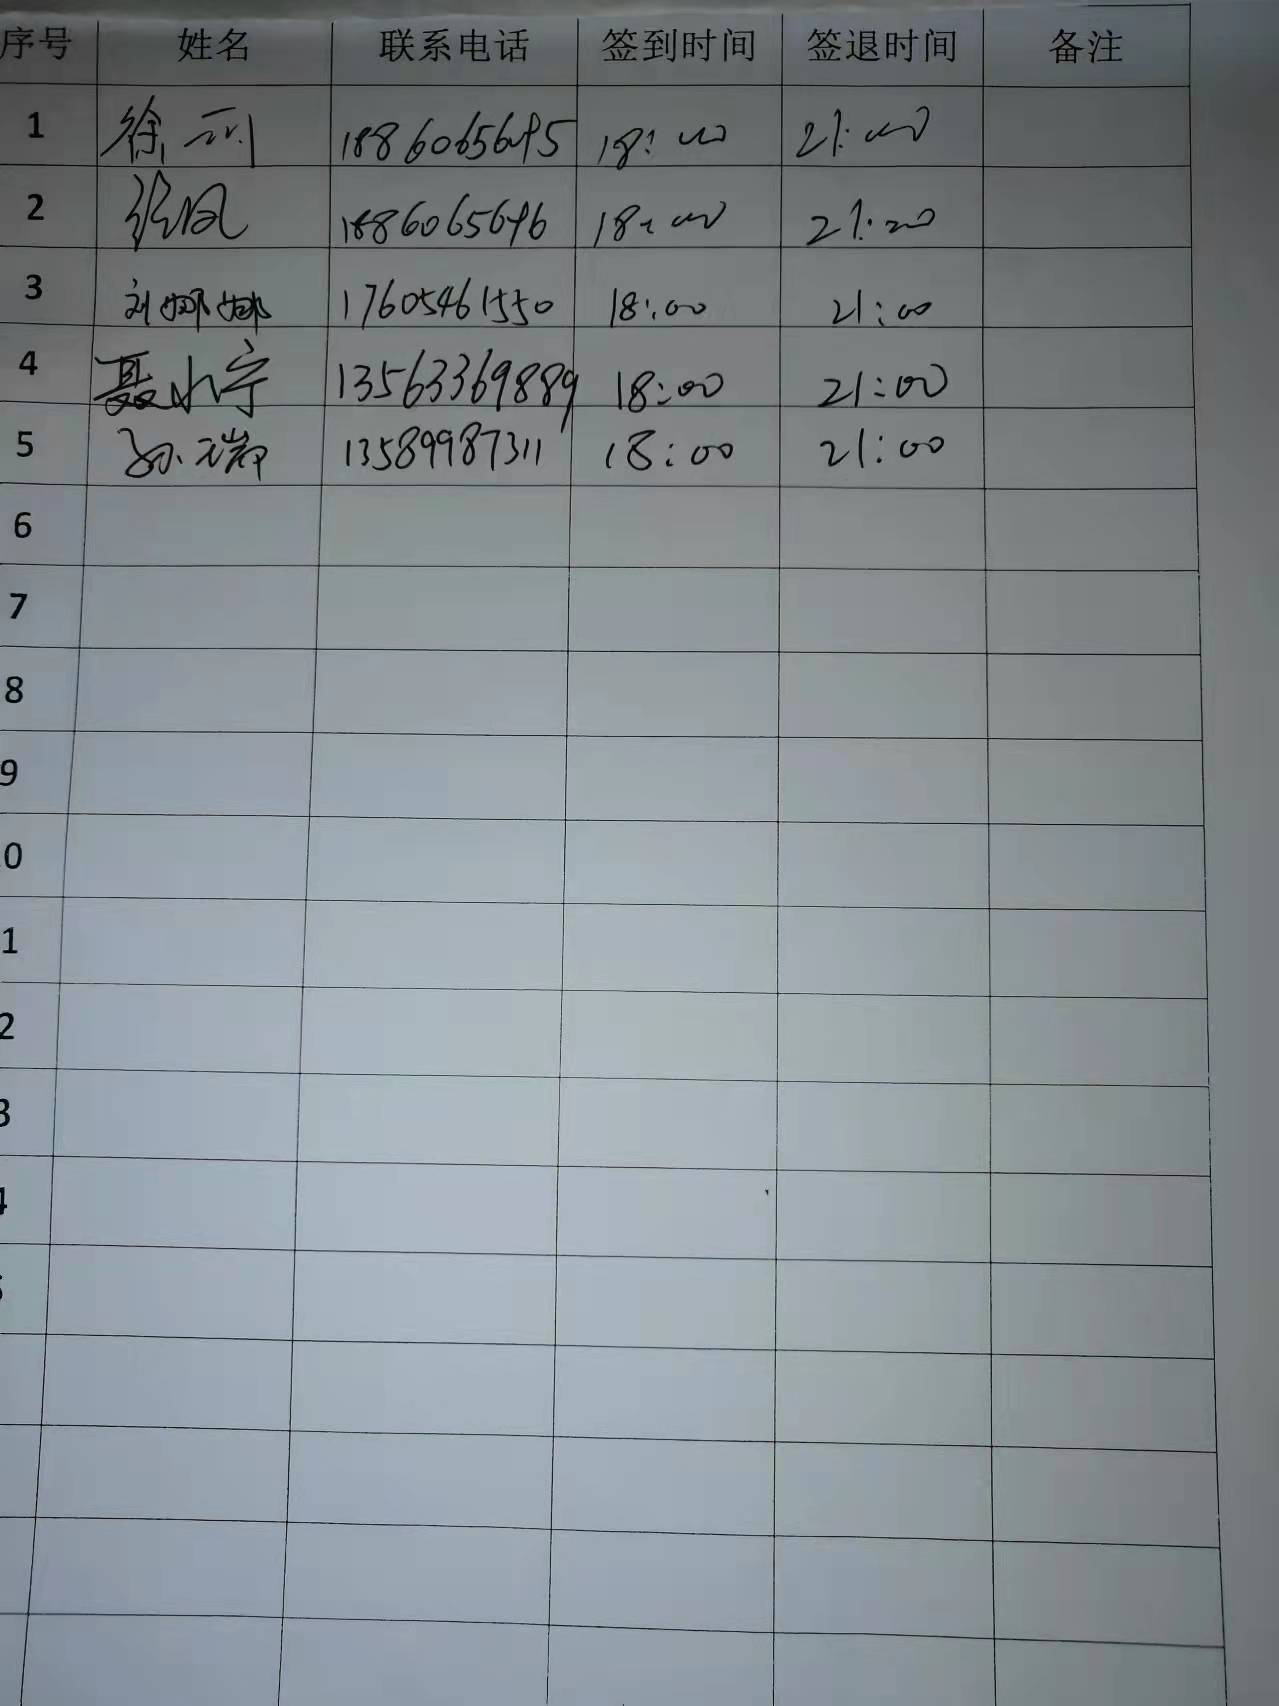 序号 姓名 联系电话 签到时间 签退时间 备注
1 徐 18:00 21:00
2 18:00 21:00
3 刘娜娜 17605461550 18:00 21:00
4 聂小宁 13563369889 18:00 21:00
5 孙元瑞 13589987311 18:00 21:00
6
7
8
9
0
1
2
3
4
5